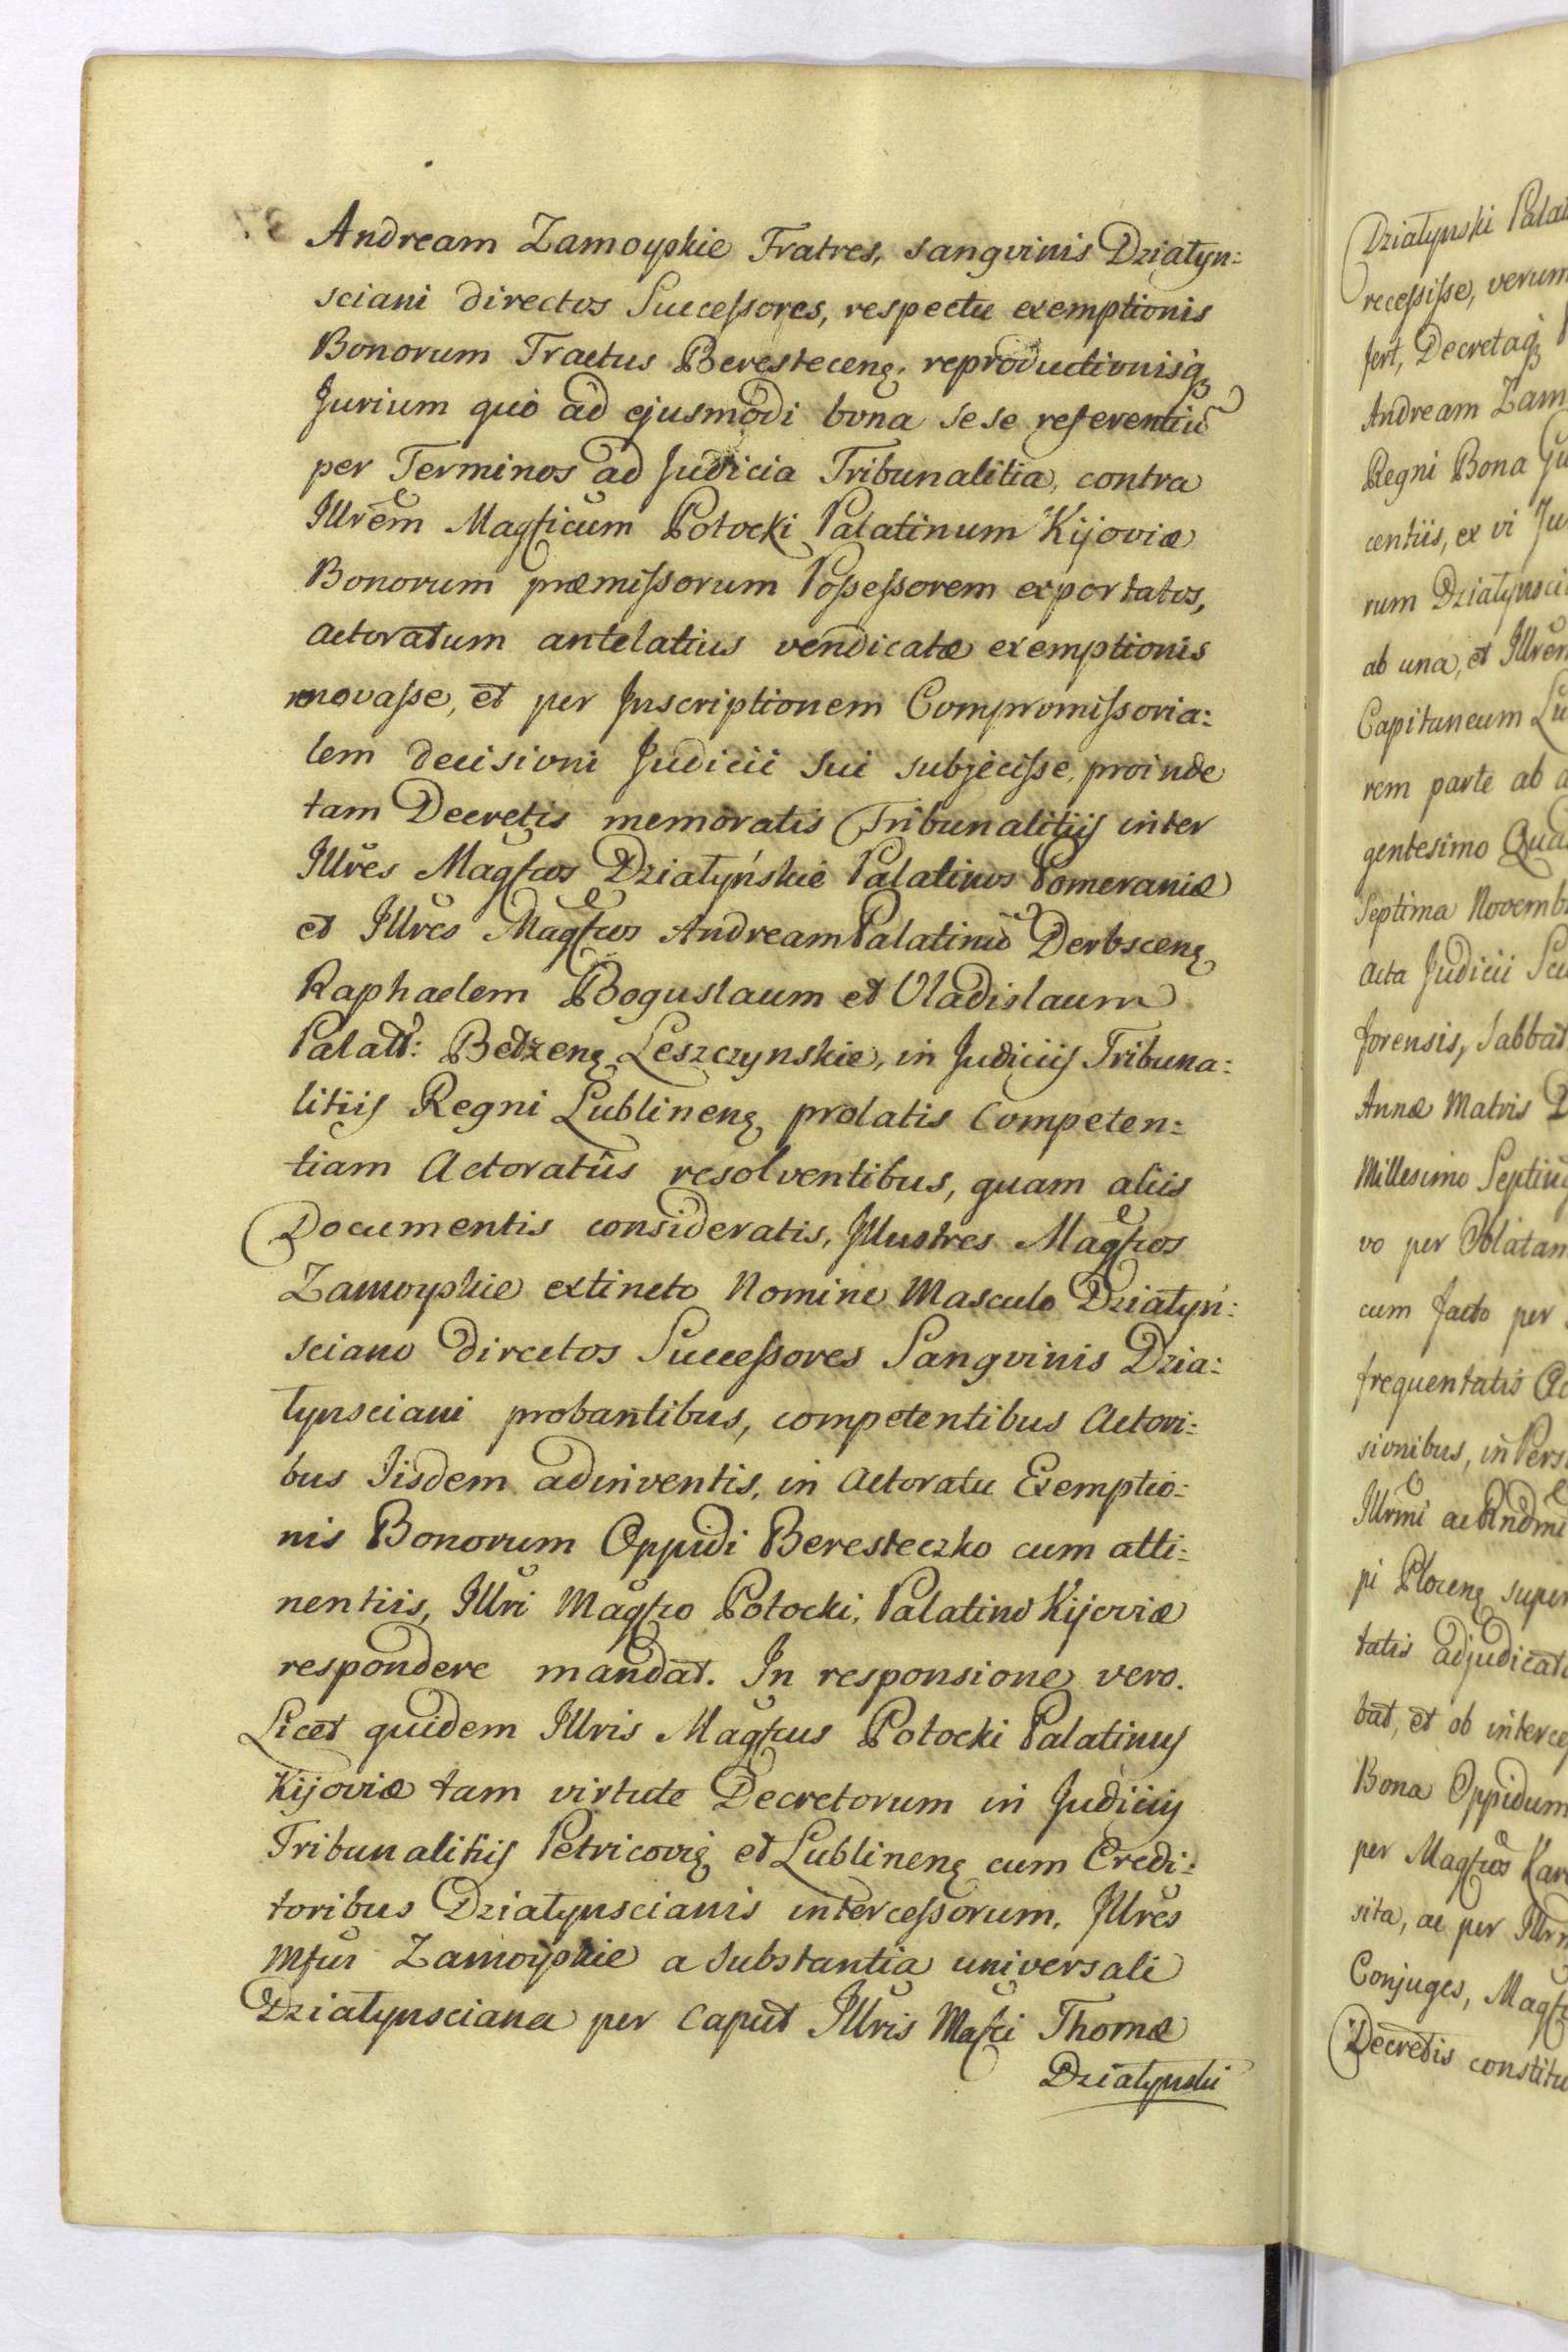 Andream Zamoyskie Fratres, sangvinis Działyn:
sciani directos Successores, respectu exemptionis
Bonorum Tractus Beresteceng, reproductionisq
Jurium quo ad ejusmodi bona sese referentiū
per Terminos ad Judicia Tribunalitia, contra
Illrem Magficum Potocki Palatinum Kijoviæ
Bonorum præmissorum Possessorem exportatos,
actoratum antelatius vendicatæ exemptionis
movasse, et per Inscriptionem Compromissoria:
lem decisioni Judicii sui subjecisse, proinde
tam Decretis memoratis Tribunalitiis inter
Illres Magfcos Działyńskie Palatinos Pomeraniæ
et Illres Magfcos Andream Palatinū Derbsceng
Raphaelem Boguslaum et Vladislaum
Palatt: Betzeng Leszczynskie, in Judiciis Tribuna:
litiis Regni Lublineng prolatis Competen:
tiam Actoratûs resolventibus, quam aliis
Documentis consideratis, Illustres Magfcos
Zamoyskie extincto Nomine Masculo Działyń:
sciano directos Successores Sangvinis Dzia:
łynsciani probantibus, competentibus Actori:
bus Iisdem adinventis, in Actoratu Exemptio:
nis Bonorum Oppidi Beresteczko cum atti:
nentiis, Illri Magfco Potocki, Palatino Kijoviæ
respondere mandat. In responsione vero.
Licet quidem Illris Magfcus Potocki Palatinus
Kijoviæ tam virtute Decretorum in Judiciis
Tribunalitiis Petricovig et Lublineng cum Credi:
toribus Działynscianis intercessorum, Illres
Mfcui Zamoyskie a Substantia universali
Działynsciana per Caput Illris Mafci Thomæ
Działynski
Działynski
recessisse, verum
fert, Decretaq
Andream Zam
Regni Bona
centiis, ex vi Ju
rum Działynsci
ab una, et Illrem
Capitaneum Lu
rem parte ab a
gentesimo Qua
Septima Novemb
Acta Judicii
forensis, Sabbat
Annæ Matris
Millesimo
vo per Oblatam
cum facto per
frequentatis Ac
sionibus, in Pers
Illrmi ac Rndmi
pi Ploceng super
tatis adjudicat
bat, et ob interce
Bona Oppidum
per Magfcos Kar
sita, ac per
Conjuges, Magf
Decretis constitu